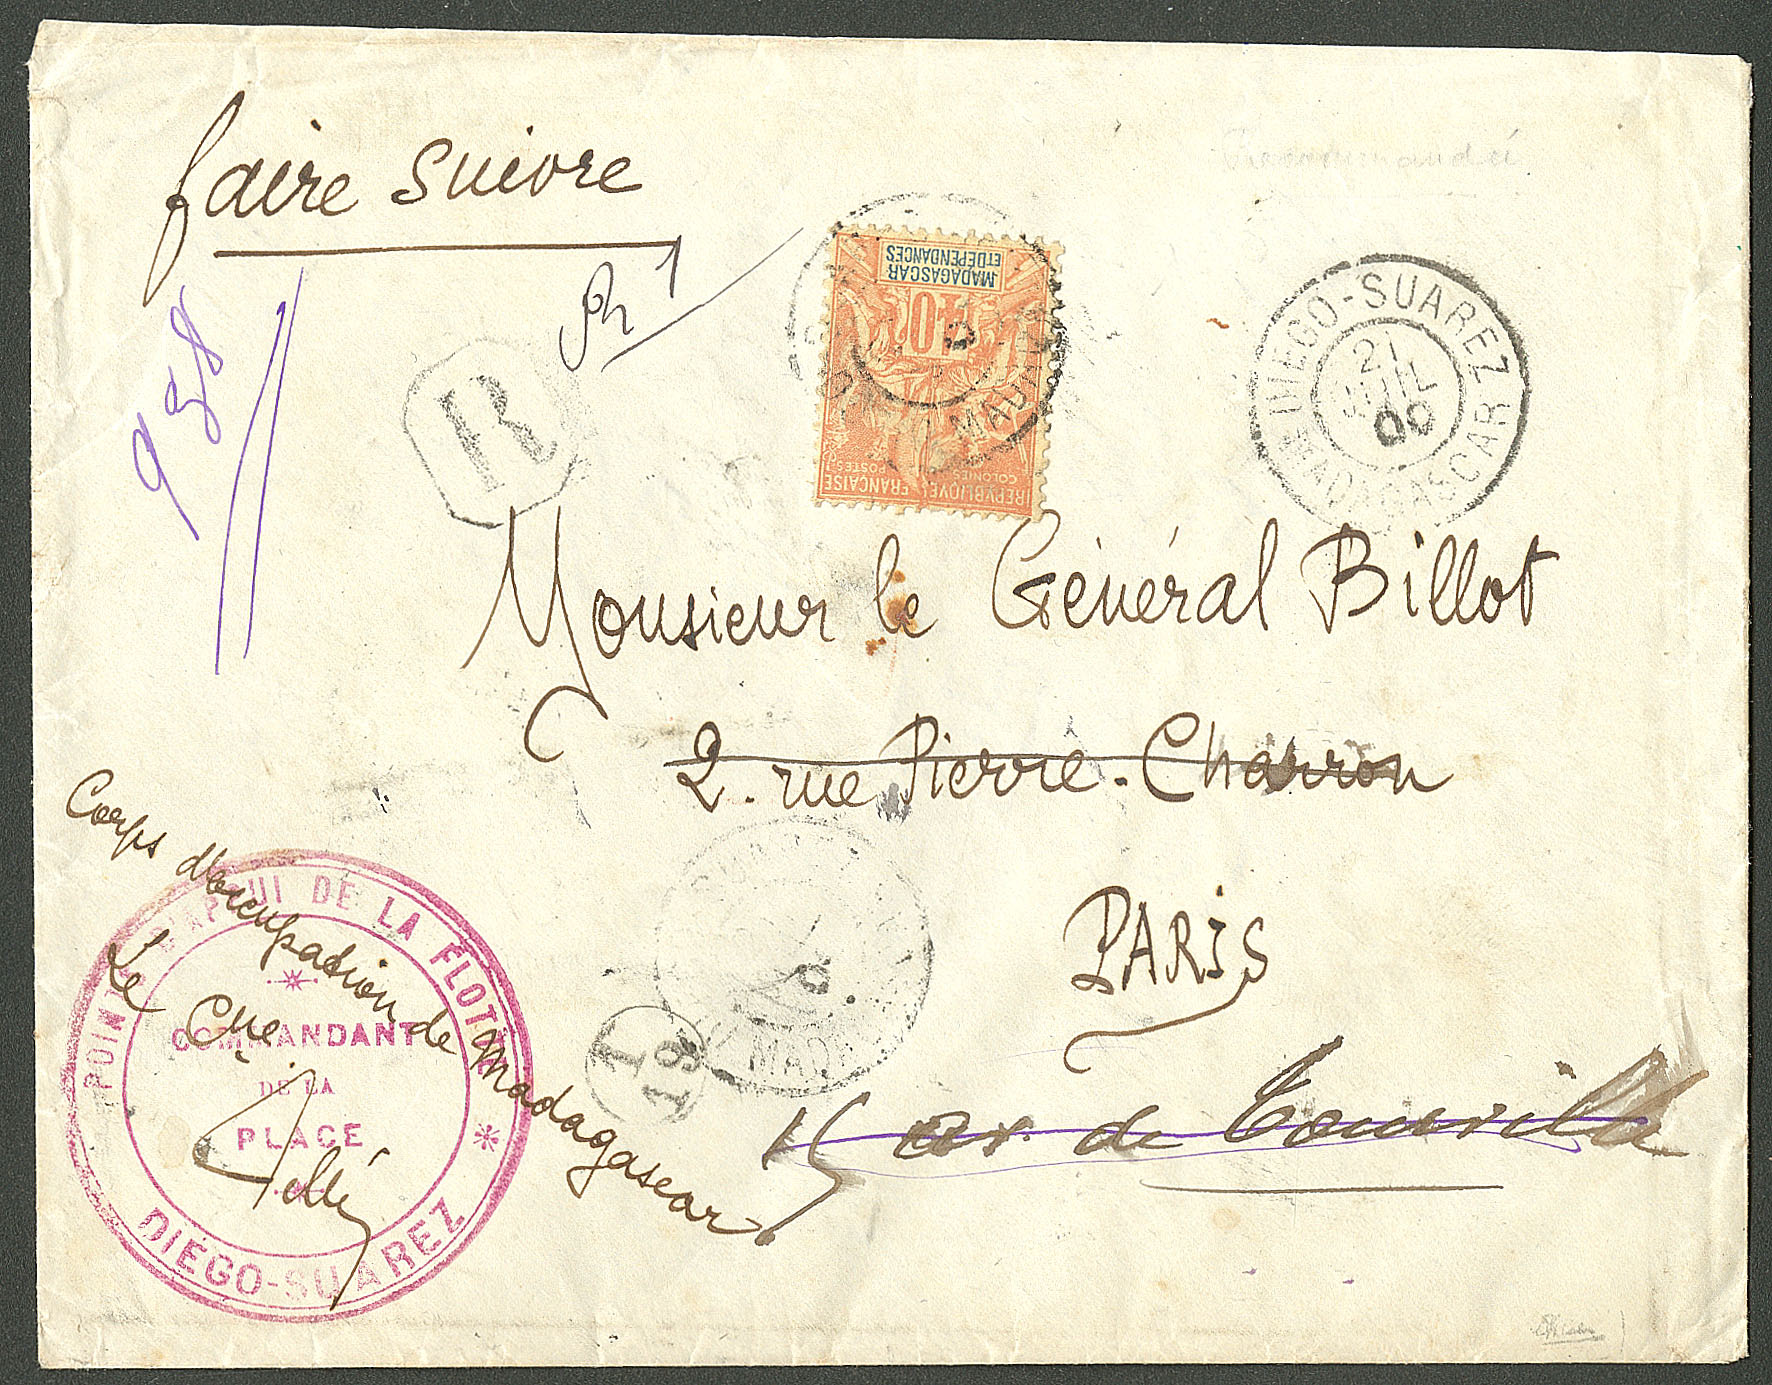 faire suivre
958
R 1
R
MADAGASCAR
ET DÉPENDANCES
40
COLONIES
POSTES
RÉPUBLIQUE FRANÇAISE
DIEGO-SUAREZ
21
JUIL
00
MADAGASCAR
Monsieur le Général Billot
2. rue Pierre-Charron
PARIS
15 av. de Tourville
Corps d'occupation de Madagascar.
Le
POINT D'APPUI DE LA FLOTTE
COMMANDANT
DE LA
PLACE
DIEGO-SUAREZ
T
19
MADA